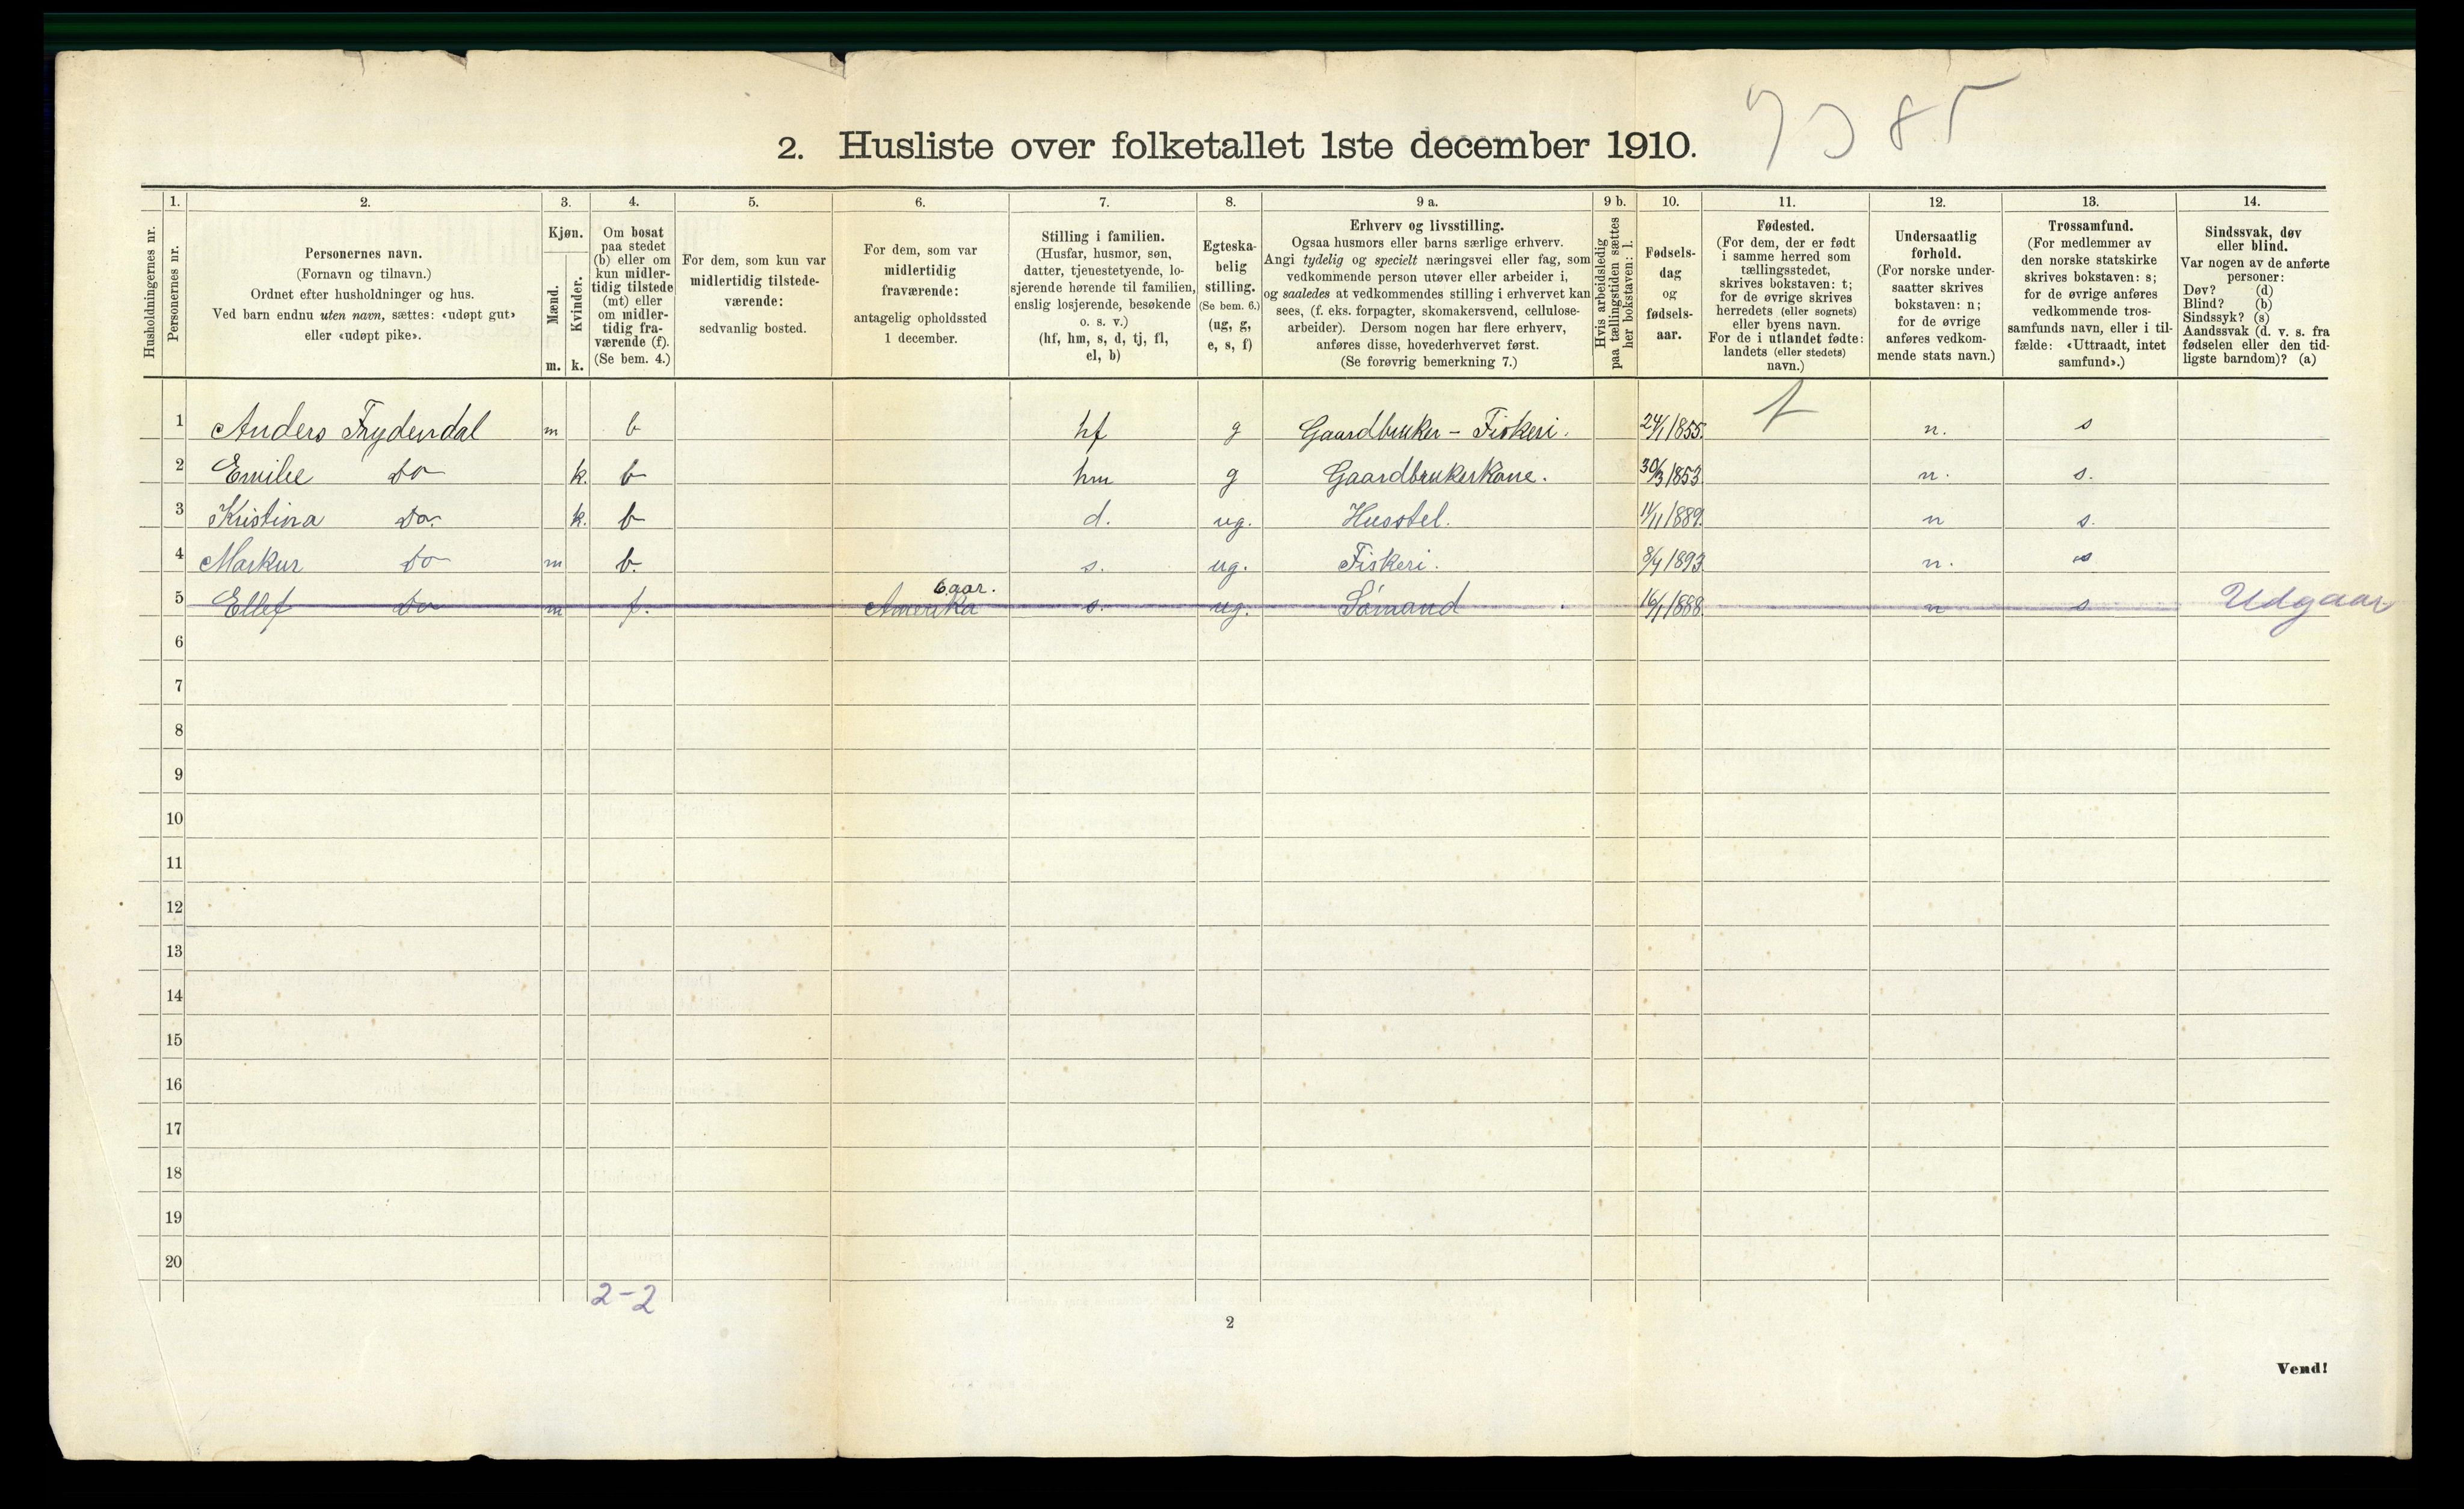 2. Husliste over folketallet 1ste december 1910.
1. 2. 3. 4. 5. 6. 7. 8. 9 a. 9 b. 10. 11. 12. 13. 14.
Husholdningernes nr.
Personernes nr.
Personernes navn.
(Fornavn og tilnavn.)
Ordnet efter husholdninger og hus.
Ved barn endnu uten navn, sættes: «udøpt gut»
eller «udøpt pike».
Kjøn.
Mænd.
Kvinder.
m. k.
Om bosat
paa stedet
(b) eller om
kun midler-
tidig tilstede
(mt) eller
om midler-
tidig fra-
værende (f).
(Se bem. 4.)
For dem, som kun var
midlertidig tilstede-
værende:
sedvanlig bosted.
For dem, som var
midlertidig
fraværende:
antagelig opholdssted
1 december.
Stilling i familien.
(Husfar, husmor, søn,
datter, tjenestetyende, lo-
sjerende hørende til familien,
enslig losjerende, besøkende
o. s. v.)
(hf, hm, s, d, tj, fl,
el, b)
Egteska-
belig
stilling.
(Se bem. 6.)
(ug, g,
e, s, f)
Erhverv og livsstilling.
Ogsaa husmors eller barns særlige erhverv.
Angi tydelig og specielt næringsvei eller fag, som
vedkommende person utøver eller arbeider i,
og saaledes at vedkommendes stilling i erhvervet kan
sees, (f. eks. forpagter, skomakersvend, cellulose-
arbeider). Dersom nogen har flere erhverv,
anføres disse, hovederhvervet først.
(Se forøvrig bemerkning 7.)
Hvis arbeidsledig
paa tællingstiden sættes
her bokstaven: l.
Fødsels-
dag
og
fødsels-
aar.
Fødested.
(For dem, der er født
i samme herred som
tællingsstedet,
skrives bokstaven: t;
for de øvrige skrives
herredets (eller sognets)
eller byens navn.
For de i utlandet fødte:
landets (eller stedets)
navn.)
Undersaatlig
forhold.
(For norske under-
saatter skrives
bokstaven: n;
for de øvrige
anføres vedkom-
mende stats navn.)
Trossamfund.
(For medlemmer av
den norske statskirke
skrives bokstaven: s;
for de øvrige anføres
vedkommende tros-
samfunds navn, eller i til-
fælde: «Uttraadt, intet
samfund».)
Sindssvak, døv
eller blind.
Var nogen av de anførte
personer:
Døv? (d)
Blind? (b)
Sindssyk? (s)
Aandssvak (d. v. s. fra
fødselen eller den tid-
ligste barndom)? (a)
1 Anders Frydendal m b hf g Gaardbruker - Fiskeri. 24/1 1855. t n. s
2 Emilie do k. b hm g Gaardbrukerkone. 30/3 1853 n. s.
3 Kristina do. k. b d. ug. Husstel. 11/11 1889. n s.
4 Markur do m b. s. ug. Fiskeri. 8/4 1893 n. s
6 aar.
5 Ellef do m f. Amerika s. ug. Sømand 16/1 1888. n s Udgaar
6
7
8
9
10
11
12
13
14
15
16
17
18
19
20
2-2
2
Vend!